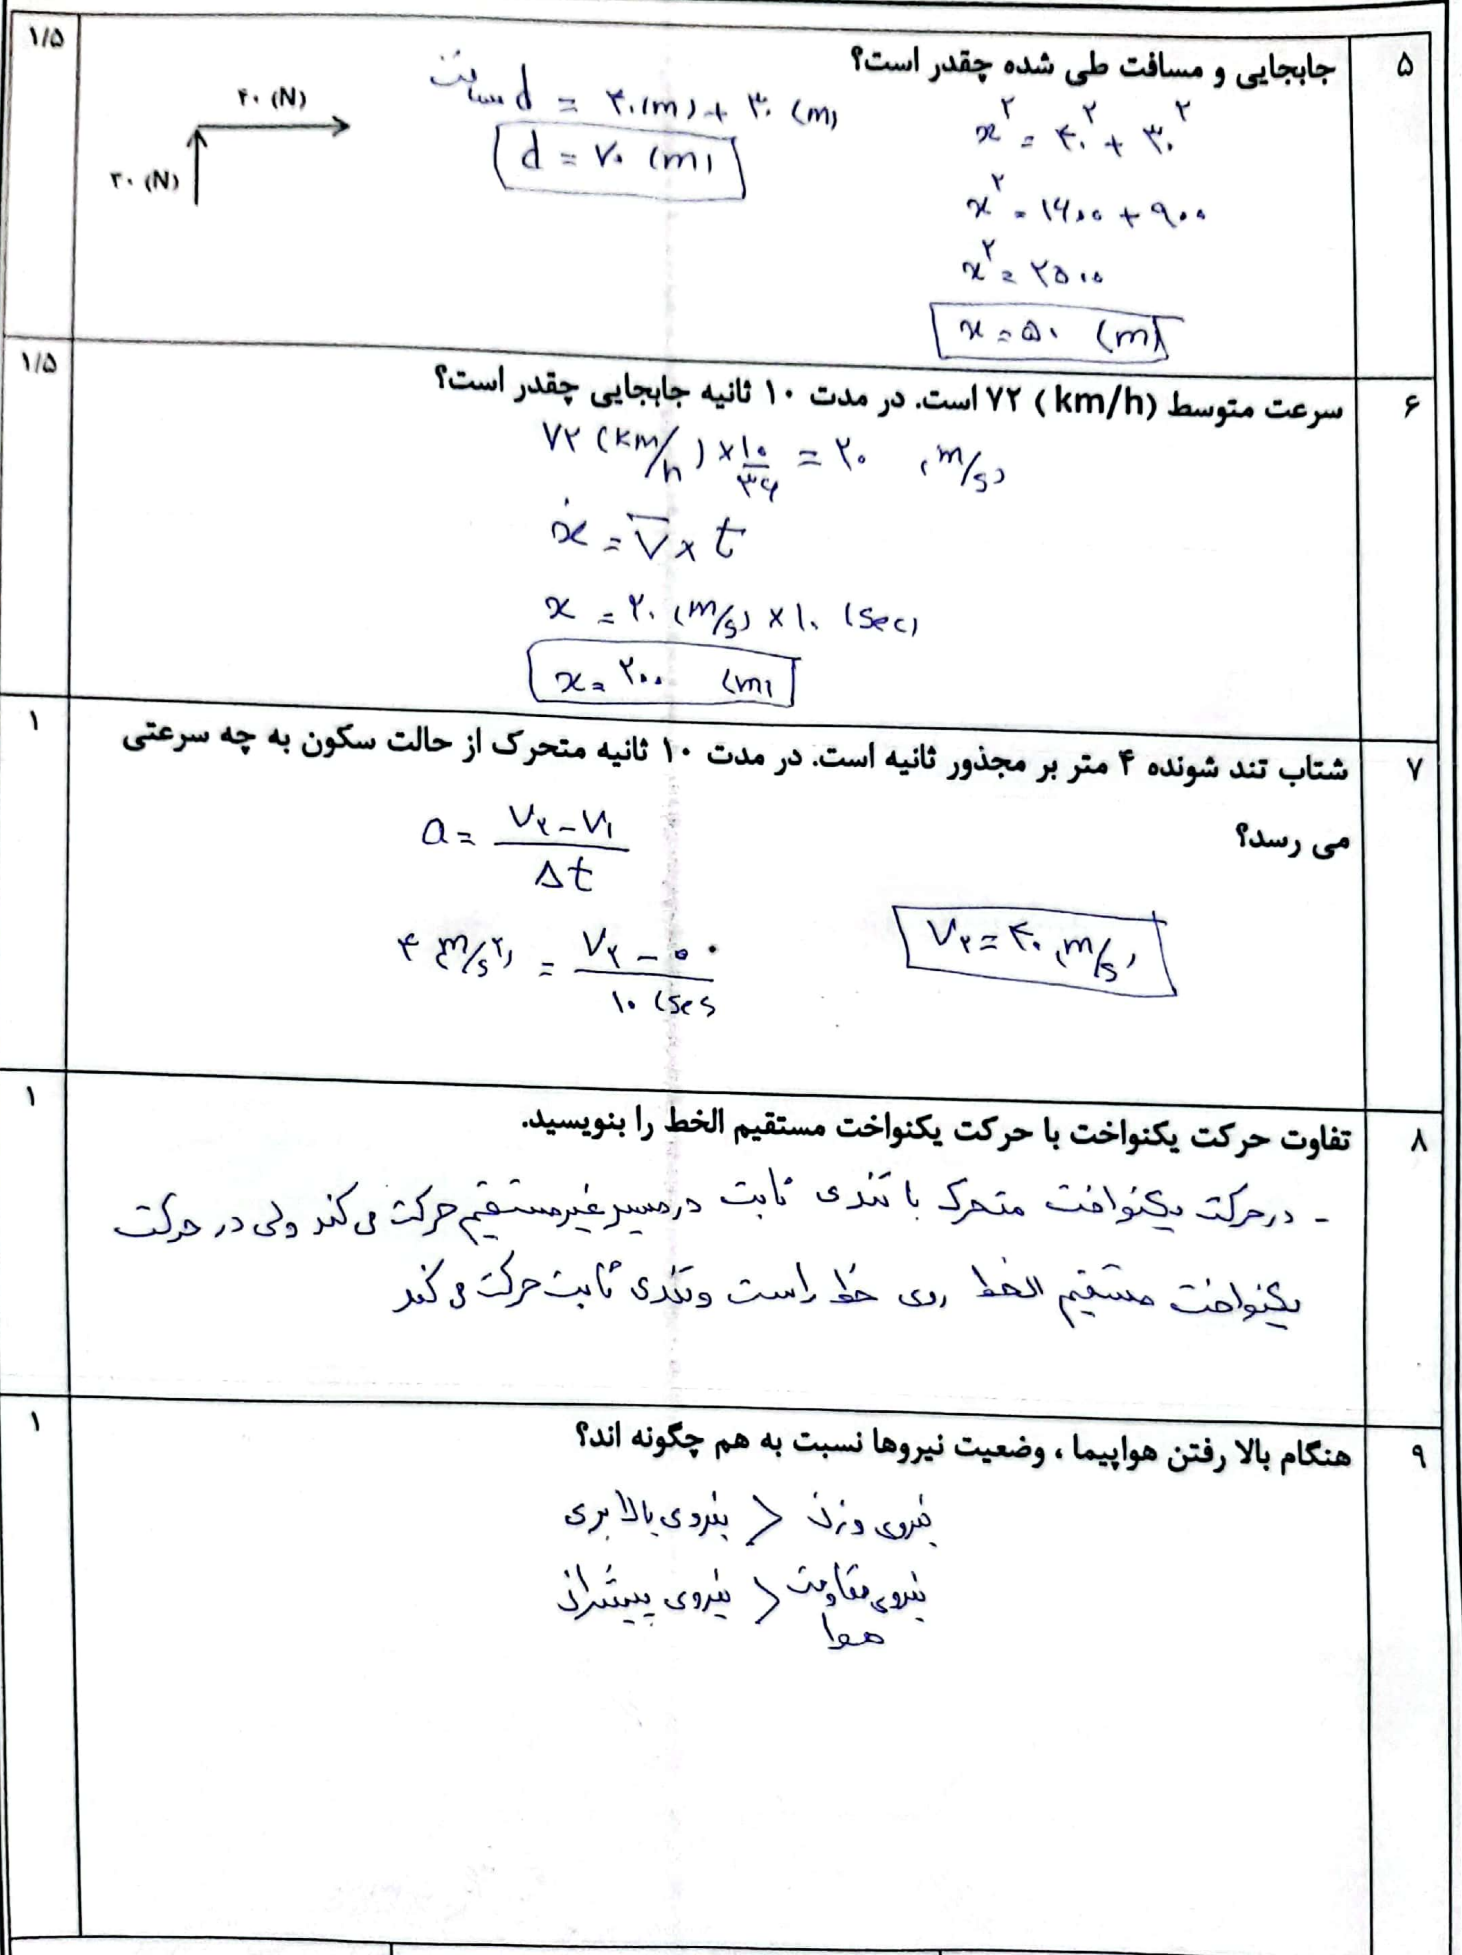 ۵
جابجایی و مسافت طی شده چقدر است؟
۱/۵
۴۰ (N)
۳۰ (N)
مسافت d = ۴۰(m) + ۳۰ (m)
d = ۷۰ (m)
x² = ۴۰² + ۳۰²
x² = ۱۶۰۰ + ۹۰۰
x² = ۲۵۰۰
x = ۵۰ (m)
۶
سرعت متوسط (km/h) ۷۲ است. در مدت ۱۰ ثانیه جابجایی چقدر است؟
۱/۵
۷۲ (km/h) × ۱۰/۳۶ = ۲۰ (m/s)
x = V̅ × t
x = ۲۰ (m/s) × ۱۰ (sec)
x = ۲۰۰ (m)
۷
شتاب تند شونده ۴ متر بر مجذور ثانیه است. در مدت ۱۰ ثانیه متحرک از حالت سکون به چه سرعتی
می رسد؟
۱
a = V۲ - V۱ / Δt
۴ (m/s²) = V۲ - ۰ / ۱۰ (sec)
V۲ = ۴۰ (m/s)
۸
تفاوت حرکت یکنواخت با حرکت یکنواخت مستقیم الخط را بنویسید.
۱
- در حرکت یکنواخت متحرک با تندی ثابت در مسیر غیر مستقیم حرکت می کند ولی در حرکت
یکنواخت مستقیم الخط روی خط راست و تندی ثابت حرکت می کند
۹
هنگام بالا رفتن هواپیما ، وضعیت نیروها نسبت به هم چگونه اند؟
۱
نیروی وزن < نیروی بالا بری
نیروی مقاومت هوا < نیروی پیشران